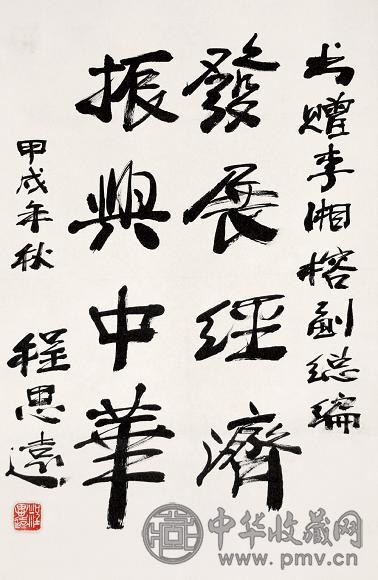 书赠李湘榕副总编
發展经濟
振興中華
甲戌年秋
程思遠
中华收藏网
www.pmv.cn